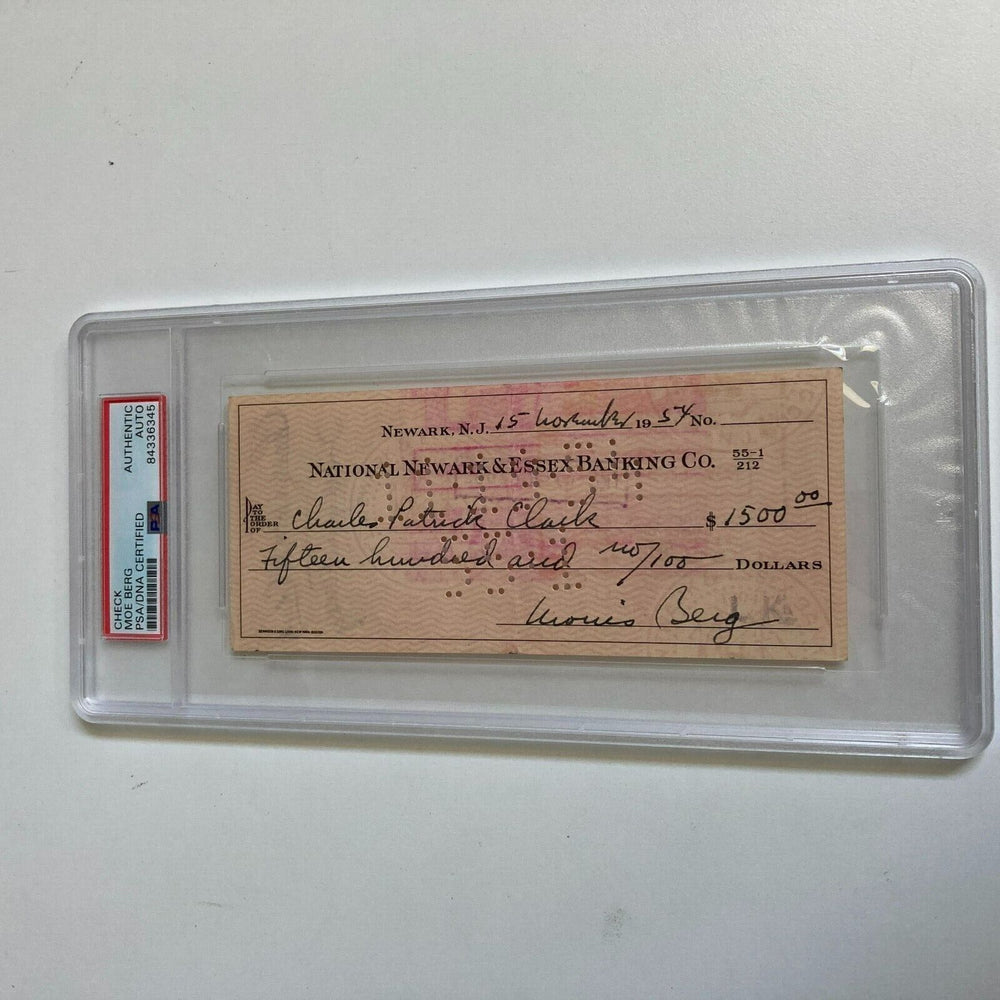 CHECK
MOE BERG
PSA/DNA CERTIFIED
AUTHENTIC
AUTO
84336345
PSA
NEWARK, N.J. 15 November 1954 No.
NATIONAL NEWARK & ESSEX BANKING CO. 55-1/212
PAY TO THE ORDER OF Charles Patrick Clark $ 1500 00
Fifteen hundred and no/100 DOLLARS
Morris Berg